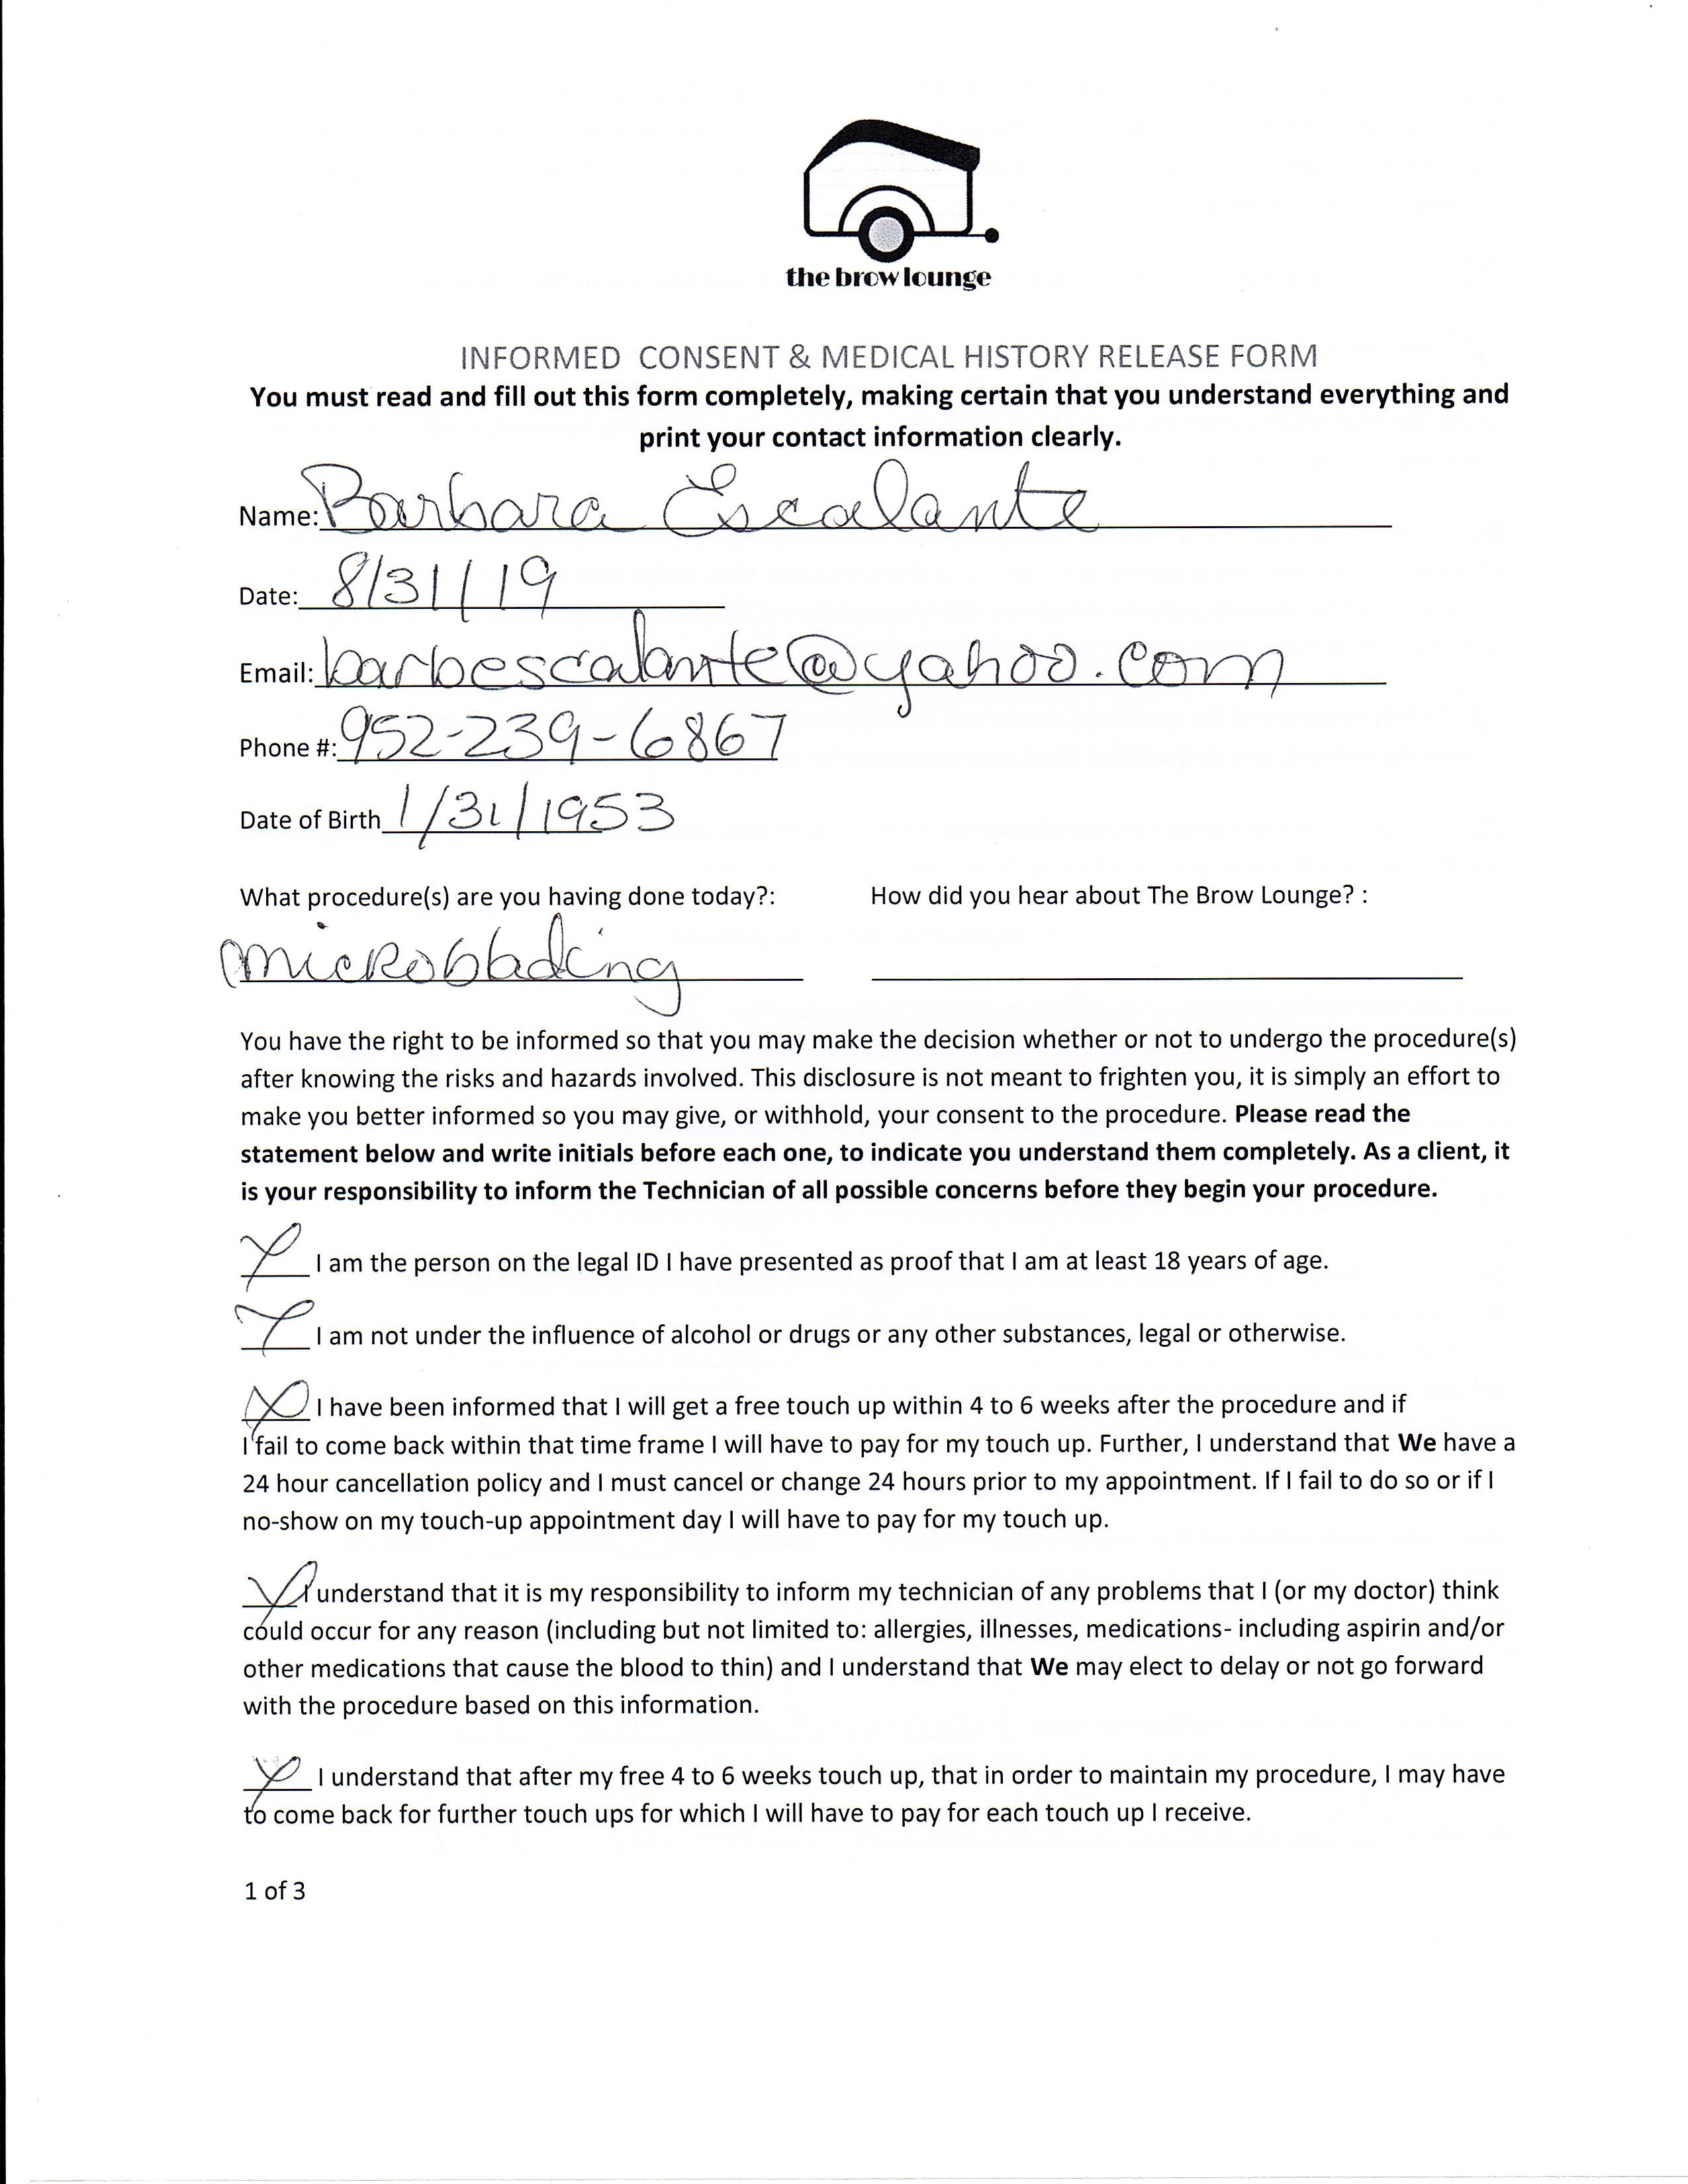 the brow lounge
INFORMED CONSENT & MEDICAL HISTORY RELEASE FORM
You must read and fill out this form completely, making certain that you understand everything and
print your contact information clearly.
Name: Barbara Escalante
Date: 8/31/19
Email: barbescalante@yahoo.com
Phone #: 952-239-6867
Date of Birth 1/31/1953
What procedure(s) are you having done today?: How did you hear about The Brow Lounge? :
microblading
You have the right to be informed so that you may make the decision whether or not to undergo the procedure(s)
after knowing the risks and hazards involved. This disclosure is not meant to frighten you, it is simply an effort to
make you better informed so you may give, or withhold, your consent to the procedure. Please read the
statement below and write initials before each one, to indicate you understand them completely. As a client, it
is your responsibility to inform the Technician of all possible concerns before they begin your procedure.
I am the person on the legal ID I have presented as proof that I am at least 18 years of age.
I am not under the influence of alcohol or drugs or any other substances, legal or otherwise.
I have been informed that I will get a free touch up within 4 to 6 weeks after the procedure and if
I fail to come back within that time frame I will have to pay for my touch up. Further, I understand that We have a
24 hour cancellation policy and I must cancel or change 24 hours prior to my appointment. If I fail to do so or if I
no-show on my touch-up appointment day I will have to pay for my touch up.
I understand that it is my responsibility to inform my technician of any problems that I (or my doctor) think
could occur for any reason (including but not limited to: allergies, illnesses, medications- including aspirin and/or
other medications that cause the blood to thin) and I understand that We may elect to delay or not go forward
with the procedure based on this information.
I understand that after my free 4 to 6 weeks touch up, that in order to maintain my procedure, I may have
to come back for further touch ups for which I will have to pay for each touch up I receive.
1 of 3